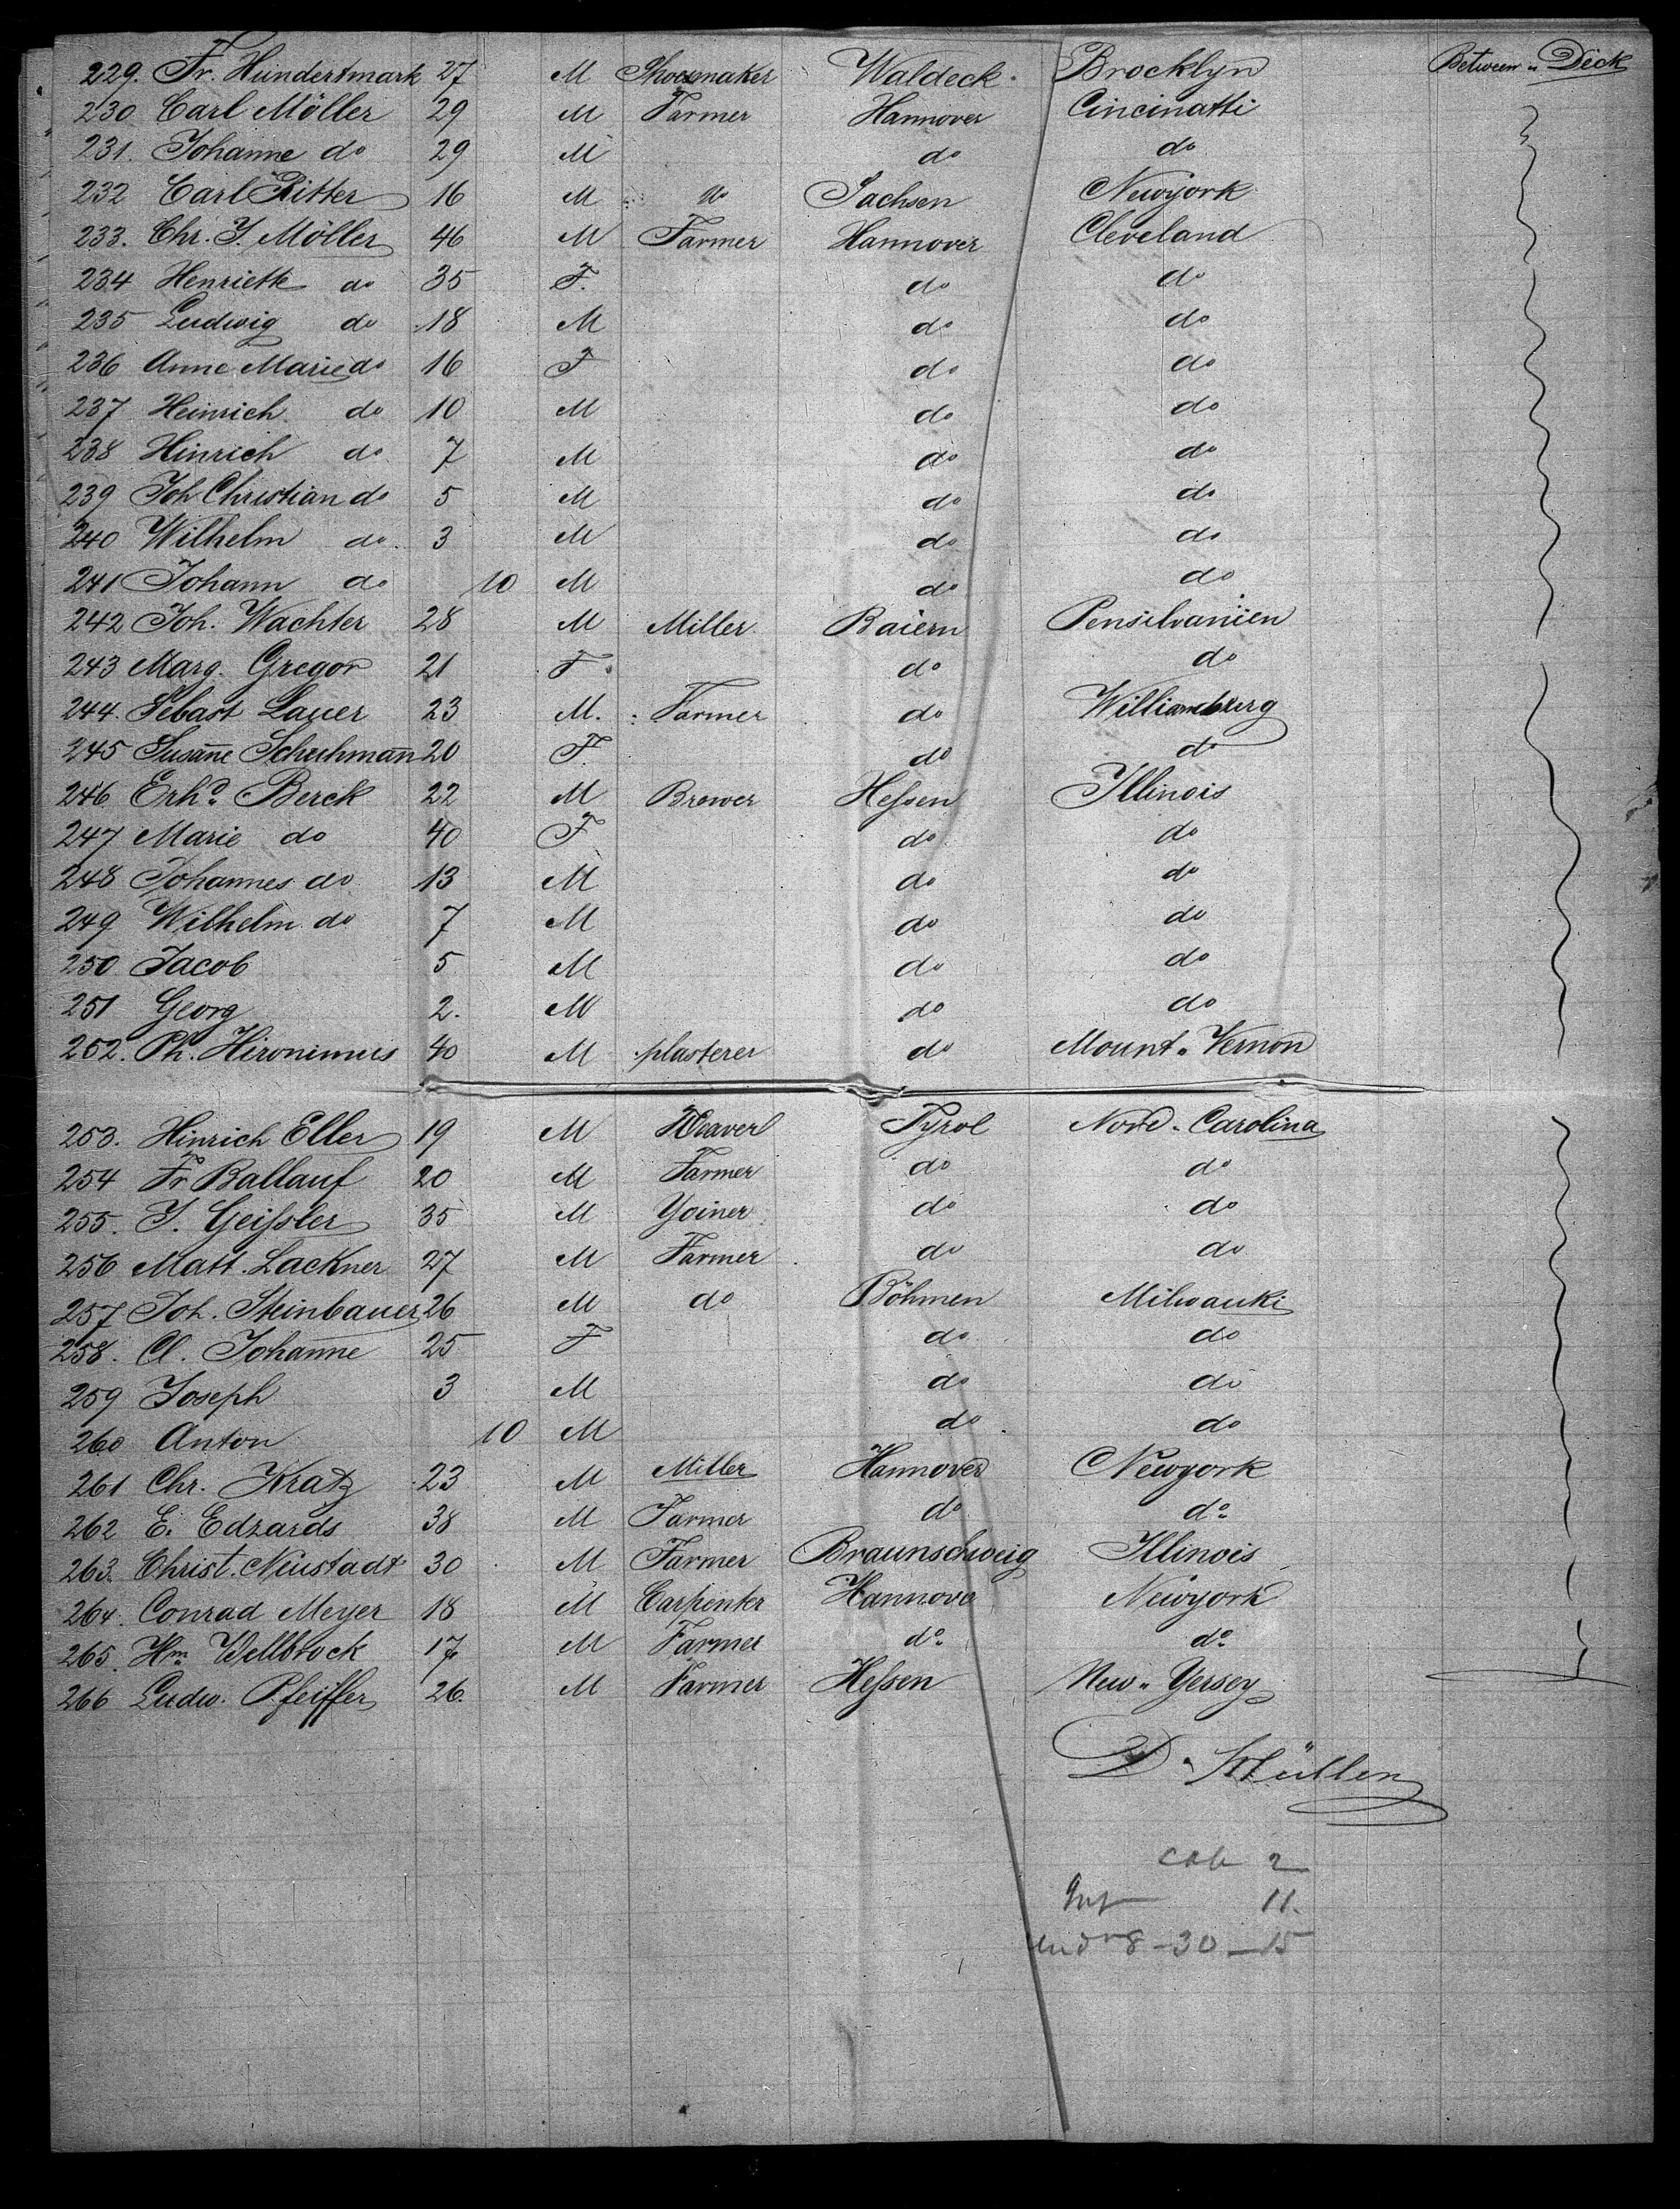 229. Fr. Hündertmark 27 M Shoesmaker Waldeck. Brocklyn Between " Deck
230 Carl Möller 29 M Farmer Hannover Cincinatti
231. Johanne do 29 M do do
232 Carl Ritter 16 M do Sachsen Newyork
233. Chr. J. Möller 46 M Farmer Hannover Cleveland
234 Henriette do 35 F. do do
235 Ludwig do 18 M do do
236 Anne Marie do 16 F do do
237 Heinrich do 10 M do do
238 Hinrich do 7 M do do
239 Joh Christian do 5 M do do
240 Wilhelm do. 3 M do do
241 Johann do 10 M do do
242 Joh. Wachter 28 M Miller Baiern Pensilvaniien
243 Marg. Gregor 21 F. do do
244. Sebast Lauer 23 M. Farmer do Williamsburg
245 Susan̄e Schuhman̄ 20 F. do do
246 Erhd. Berck 22 M Brower Hessen Illinois
247 Marie do 40 F do do
248 Johannes do 13 M do do
249 Wilhelm do 7 M do do
250 Jacob 5 M do do
251 Georg 2. M do do
252. Ph. Hironimus 40 M plasterer do Mount " Vernon
253. Hinrich Eller 19 M Weaver Tyrol Nord - Carolina
254 Fr Ballauf 20 M Farmer do do
255. J. Geissler 35 M Yoiner do do
256 Matt. Lackner 27 M Farmer do do
257 Joh. Steinbauer 26 M do Böhmen Milwauki
258. Cl. Johan̄e 25 F do do
259 Joseph 3 M do do
260 Anton 10 M do do
261 Chr. Kratz 23 M Miller Hannover Newyork
262 E. Edzards 38 M Farmer do do
263. Christ. Neustadt 30 M Farmer Braunschweig Illinois
264. Conrad Meyer 18 M Carpenter Hannove Newyork
265. Hm Wellbrock 17 M Farmer do do
266 Ludw. Pfeiffer 26. M Farmer Hessen New " Yersey
D. Müller
Cab 2
Inf 11.
Und 8 - 30 - 15